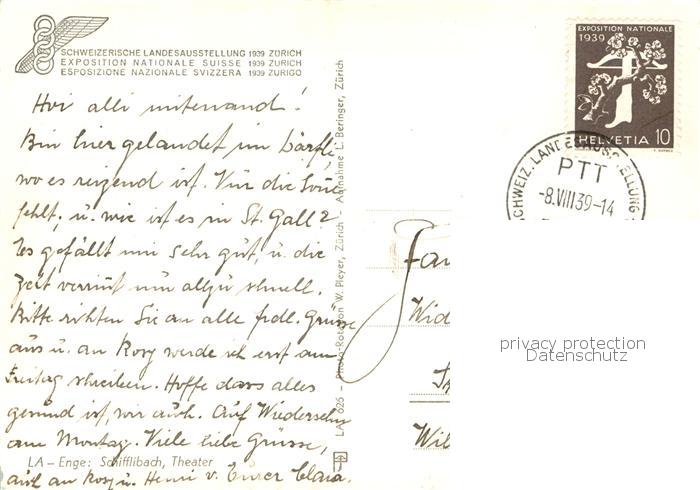 SCHWEIZERISCHE LANDESAUSSTELLUNG 1939 ZÜRICH
EXPOSITION NATIONALE SUISSE 1939 ZÜRICH
ESPOSIZIONE NAZIONALE SVIZZERA 1939 ZURIGO
Hoi alli mitenand!
Bin hier gelandet im Dörfli,
wo es reizend ist. Nur die Sonne
fehlt, u. wie ist es in St. Gall?
Es gefällt mir sehr gut, u. die
Zeit verrint nur allzu schnell.
Bitte richten Sie an alle frdl. Grüsse
aus u. an Rosy werde ich erst am
Freitag schreiben. Hoffe dass alles
gesund ist, wir auch. Auf Wiedersehn
am Montag. Viele liebe Grüsse,
auch an Rosy u. Henri v. Eurer Clara.
LA – Enge: Schifflibach, Theater
Photo-Rotation W. Pleyer, Zürich – Aufnahme L. Beringer, Zürich
EXPOSITION NATIONALE
1939
HELVETIA 10
SCHWEIZ. LANDESAUSSTELLUNG
PTT
-8.VIII39-14
Fam
Wid
Wil
privacy protection
Datenschutz